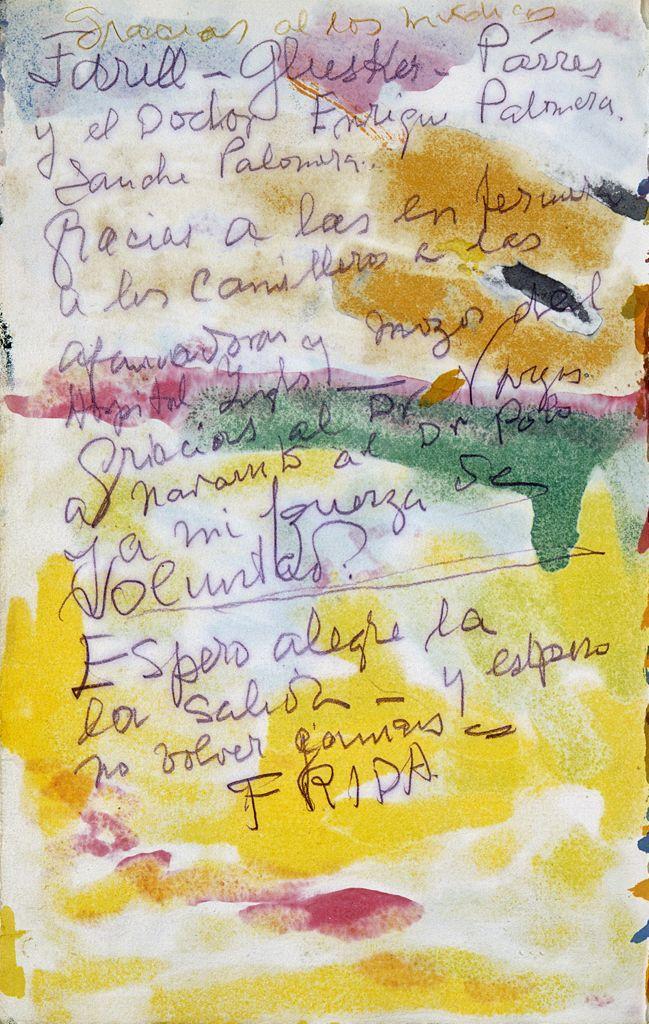 Gracias a los médicos
Farill – Glusker – Párres
y el Doctor Enrique Palomera.
Sanche Palomera..
Gracias a las enfermeras
a los Camilleros a las
afanadoras y mozos del
Hospital Inglés –
Gracias al Dr Vargas.
a Navarro al Dr Polo
y a mi fuerza de
Voluntad.
Espero alegre la
la salida – y espero
no volver jamás –
FRIDA